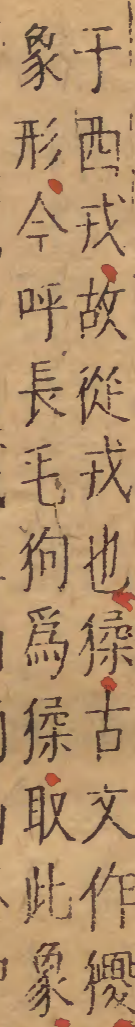 于西戎故從戎也猱古文作獶
象形今呼長毛狗為猱取此象